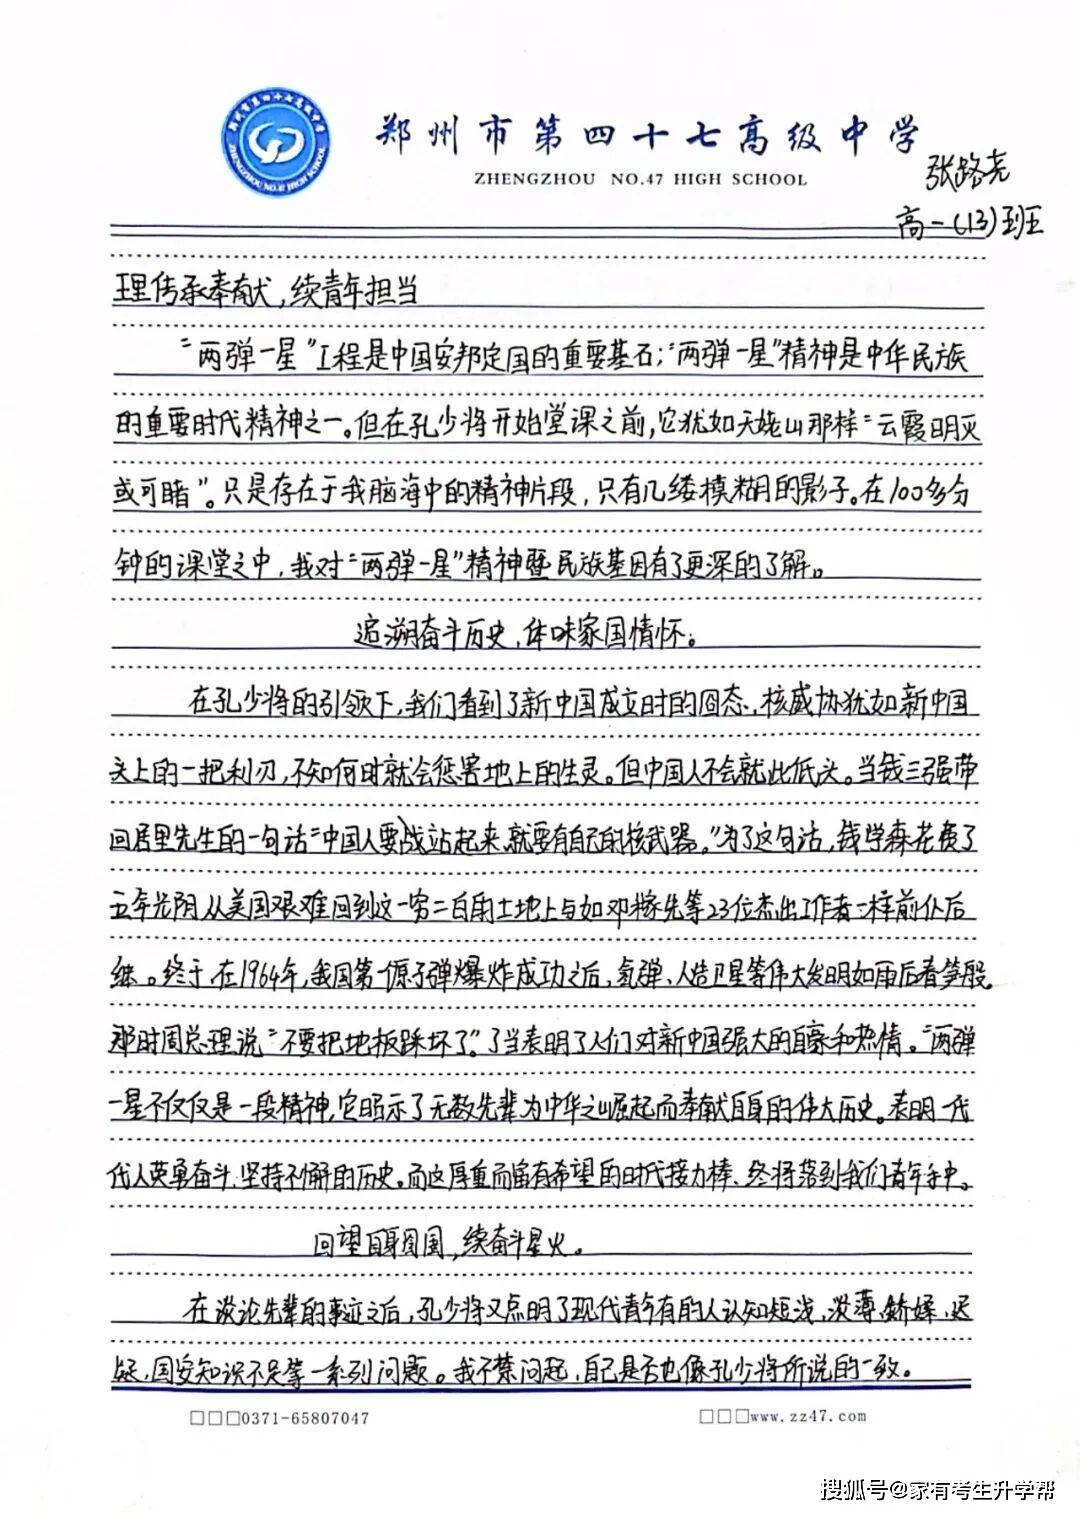 郑州市第四十七高级中学
ZHENGZHOU NO.47 HIGH SCHOOL
郑州市第四十七高级中学
ZHENGZHOU NO.47 HIGH SCHOOL
张路尧
高一(13)班
理传承奉献,续青年担当
“两弹一星”工程是中国安邦定国的重要基石;“两弹一星”精神是中华民族
的重要时代精神之一。但在孔少将开始堂课之前,它犹如天姥山那样“云霞明灭
或可睹”。只是存在于我脑海中的精神片段,只有几缕模糊的影子。在100多分
钟的课堂之中,我对“两弹一星”精神暨民族基因有了更深的了解。
追溯奋斗历史,体味家国情怀。
在孔少将的引领下,我们看到了新中国成立时的囧态,核威协犹如新中国
头上的一把利刃,不知何时就会惩害地上的生灵。但中国人不会就此低头。当钱三强带
回居里先生的一句话“中国人要站起来,就要有自己的核武器。”为了这句话,钱学森花费了
五年光阴从美国艰难回到这一穷二白的土地上与如邓稼先等23位杰出工作者一样前仆后
继。终于,在1964年,我国第一原子弹爆炸成功之后,氢弹、人造卫星等伟大发明如雨后春笋般。
那时周总理说“不要把地板踩坏了”了当表明了人们对新中国强大的自豪和热情。“两弹
一星不仅仅是一段精神,它昭示了无数先辈为中华之崛起而奉献自身的伟大历史。表明一代
代人英勇奋斗、坚持不懈的历史。而这厚重而留有希望的时代接力棒、终将落到我们青年手中。
回望自身周围,续奋斗星火。
在谈论先辈的事迹之后,孔少将又点明了现代青年有的人认知短浅、淡薄、娇媃、迟
疑,国安知识不足等一系列问题。我不禁问起,自己是否也像孔少将所说的一致。
□□□0371-65807047
□□□www.zz47.com
搜狐号@家有考生升学帮